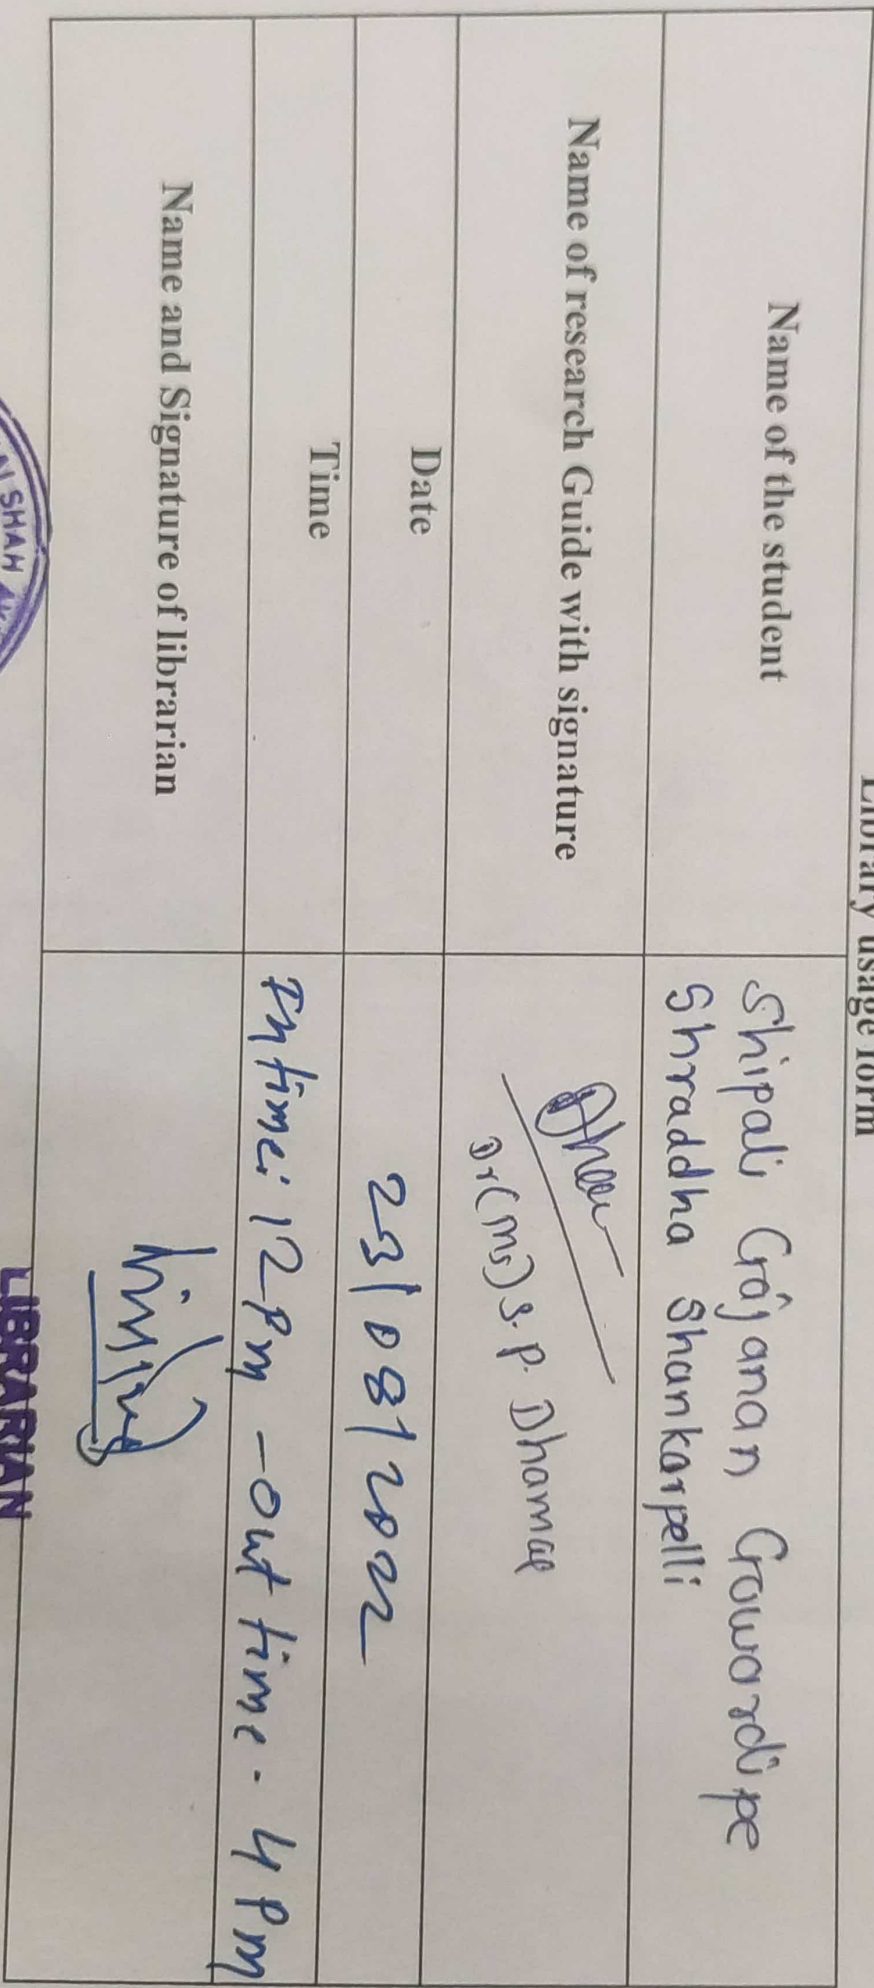 Library usage form
Name of the student
Shipali Gajanan Gowardipe
Shraddha Shankarpelli
Name of research Guide with signature
Dr (Ms) S. P. Dhamae
Date
23/08/2022
Time
In time: 12 Pm - Out time - 4 Pm
Name and Signature of librarian
SHAH
LIBRARIAN